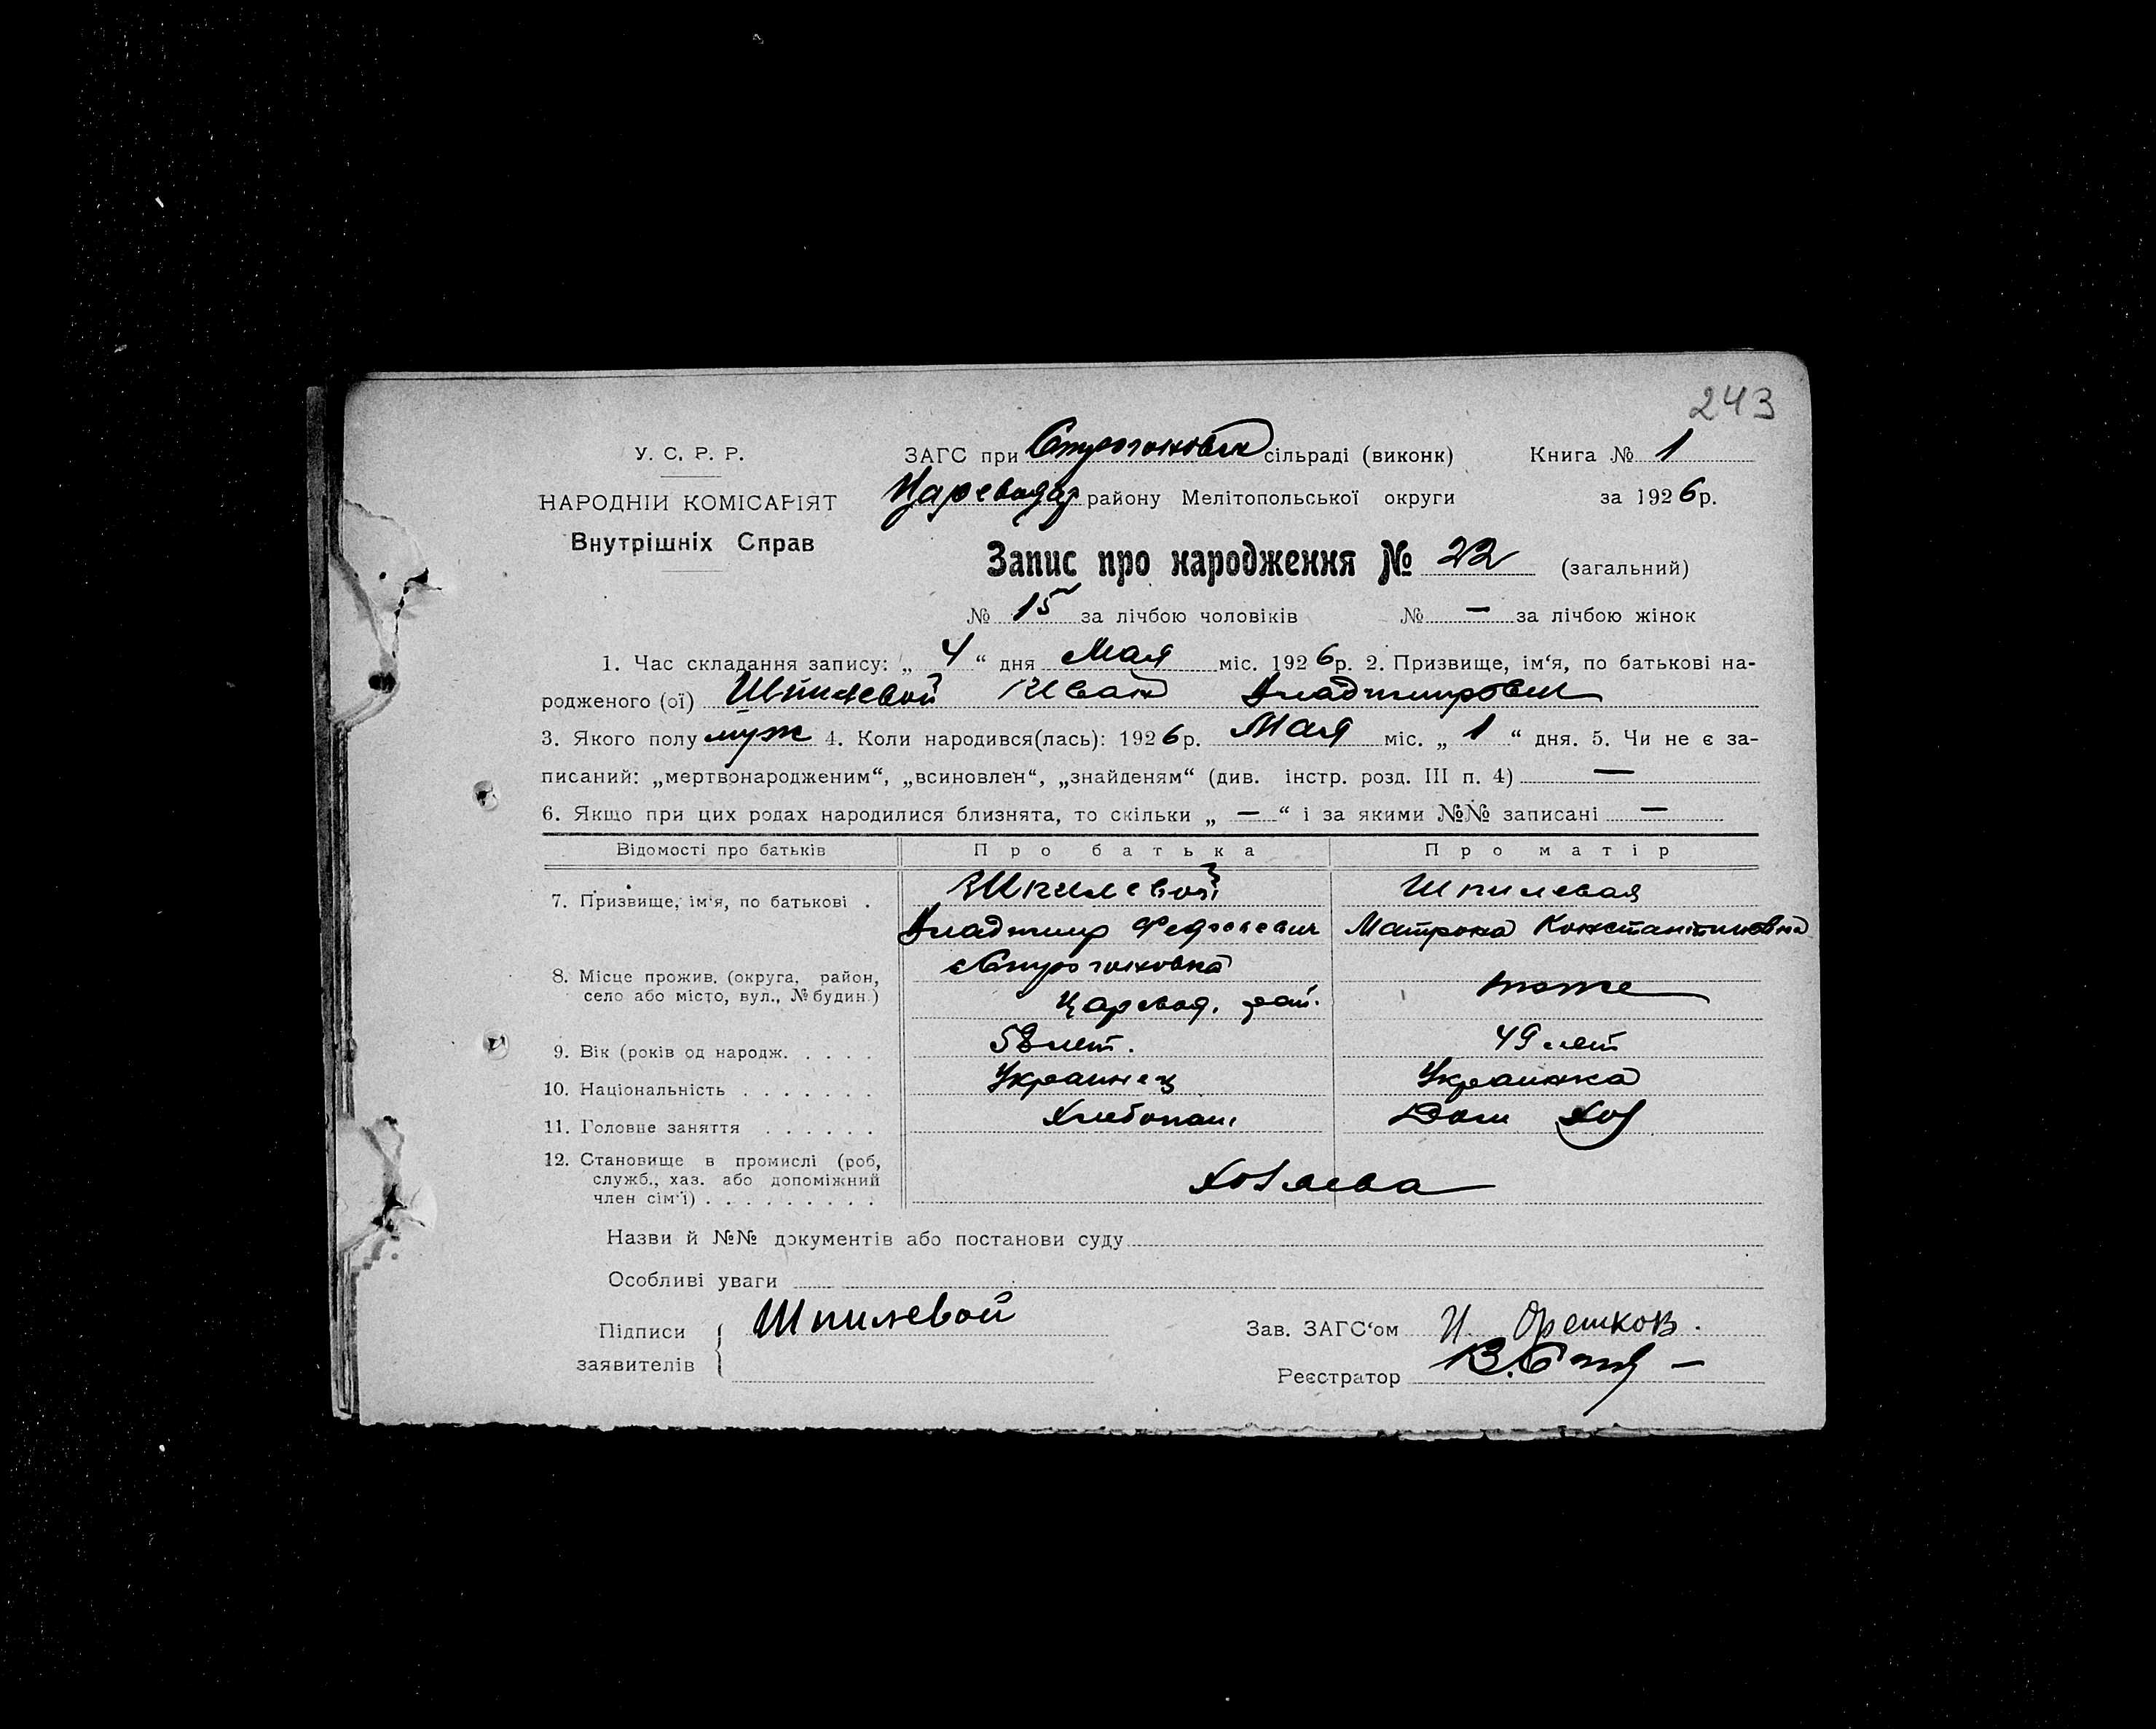 243
У. С. Р. Р.
НАРОДНІЙ КОМІСАРІЯТ
Внутрішніх Справ
ЗАГС при сільраді (виконк) Книга № 1
району Мелітопольської округи за 1926р.
Запис про народження № 22 (загальний)
№ 15 за лічбою чоловіків № — за лічбою жінок
1. Час складання запису: „ 4 “ дня Мая міс. 1926р. 2. Призвище, ім‘я, по батькові на-
родженого (ої) Шпилевой Иван Владимирович
3. Якого полу муж 4. Коли народився(лась): 1926р. Мая міс. „ 1 “ дня. 5. Чи не є за-
писаний: „мертвонародженим“, „всиновлен“, „знайденям“ (див. інстр. розд. III п. 4) —
6. Якщо при цих родах народилися близнята, то скільки „ — “ і за якими №№ записані —
Відомості про батьків Про батька Про матір
7. Призвище, ім‘я, по батькові . Шпилевой Шпилевая
Владимир Матрона Константиновна
8. Місце прожив. (округа, район,
село або місто, вул., № будин.) тоже
Царевод. рай.
9. Вік (років од народж. . . . . 58 лет. 49 лет
10. Національність . . . . . . . Украинец Украинка
11. Головне заняття . . . . . . Хлебопаш. Дом Хоз
12. Становище в промислі (роб,
служб., хаз. або допоміжний
член сім‘ї) . . . . . . . . . Хозяева
Назви й №№ документів або постанови суду
Особливі уваги
Підписи
заявителів
Шпилевой
Зав. ЗАГС‘ом И Орешков.
Реєстратор